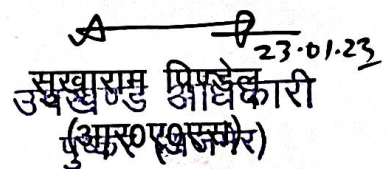 23.01.23
सुखाराम पिण्डेल
उपखण्ड अधिकारी
(आर०ए०एस)
पुष्कर (अजमेर)